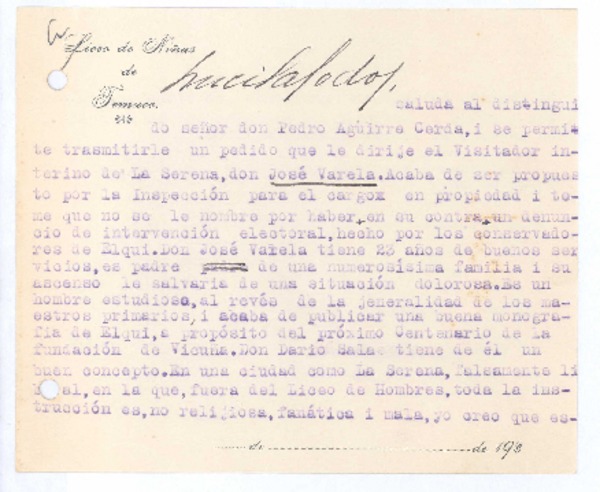 Liceo de Niñas
de
Temuco.
Lucila Godoy,
saluda al distingui
do señor don Pedro Aguirre Cerda, i se permit
te trasmitirle un pedido que le dirije el Visitador in-
terino de La Serena, don José Varela. Acaba de ser propues
to por la Inspección para el cargox en propiedad i te-
me que no se le nombre por haber en su contra un denun-
cio de intervención electoral, hecho por los conservado-
res de Elqui. Don José Varela tiene 23 años de buenos ser
vicios, es padre de una numerosísima familia i su
ascenso le salvaria de una situación dolorosa. Es un
hombre estudioso, al revés de la jeneralidad de los ma-
estros primarios, i acaba de publicar una buena monogra-
fia de Elqui, a propósito del próximo Centenario de La
fundación de Vicuna. Don Dario Salas tiene de él un
buen concepto. En una ciudad como La Serena, falsamente li
beral, en la que, fuera del Liceo de Hombres, toda la ins-
trucción es, no relijiosa, fanática i mala, yo creo que es-
de de 192